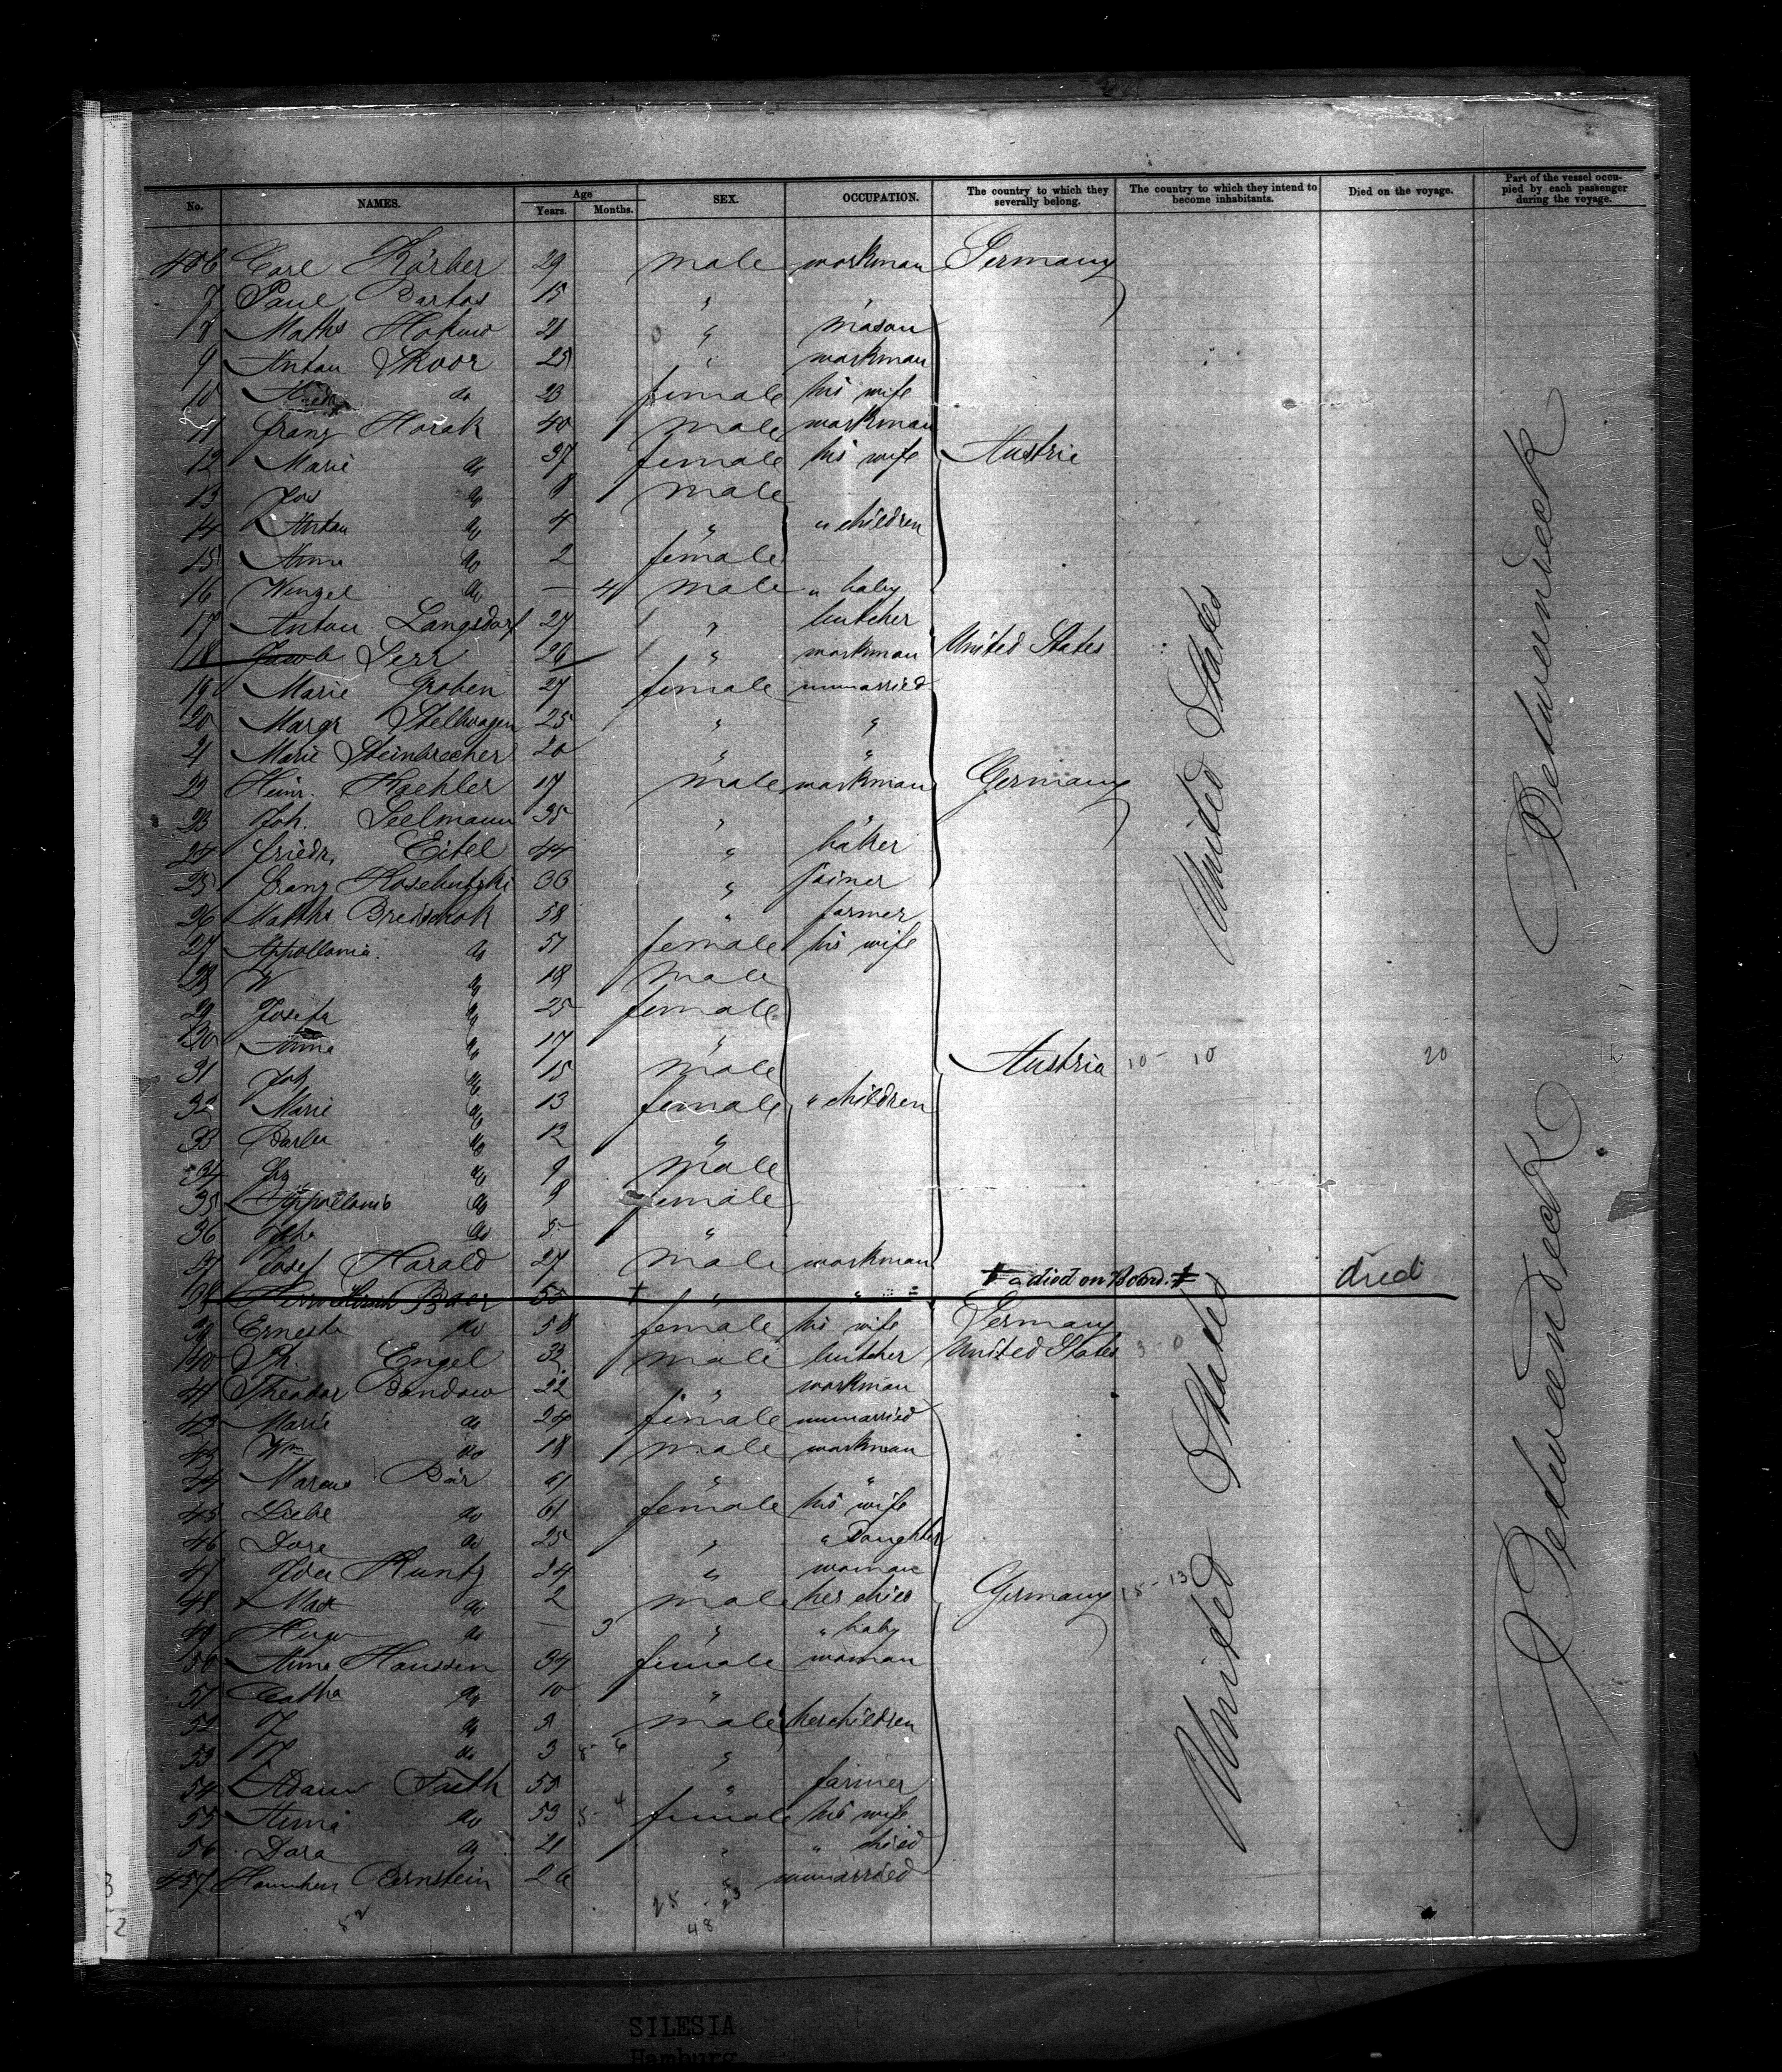 No. NAMES. Age Years. Months. SEX. OCCUPATION. The country to which they severally belong. The country to which they intend to become inhabitants. Died on the voyage. Part of the vessel occupied by each passenger during the voyage.
406 Carl Körber 29 male workman Germany
7 Paul Bartos 15 " "
8 Maths 21 " mason
9 Anton Skoor 25 " workman
10 do 23 female his wife
11 Franz Horak 40 male workman
12 Marie do 37 female his wife Austria
13 Jos do male
14 Anton do 4 " " children
15 Anna do 2 female
16 Wenzel do — 4 male " baby
17 Anton Langsdorf 27 " butcher
18 Jacob Serr 26 " workman United States
19 Marie Groben 27 female unmarried
20 Margr Stellwagen 25 " "
21 Marie Steinbrecher 20 " "
22 Heinr. Koehler 17 male workman Germany
23 Joh. Seelmann 35 " "
24 Friedr. Eitel 44 " baker
25 Franz 33 " joiner
26 Matths 58 " farmer
27 Appollonia do 51 female his wife
28 W do 18 male
29 Josefa do 25 female
130 Anna do 17 "
31 Joh do 15 male Austria 10 - 10 20
32 Marie do 13 female " children
33 Barba do 12 "
34 do 9 male
35 Appollonia do 9 female
36 do 5 "
37 Josef Harald 27 male workman
38 Baer 55 + " " + a died on Board. + died
39 Ernestn do 58 female his wife Germany
140 Ph. Engel 32 male butcher United States 3 - 0
41 Theodor Bandow 22 " workman
42 Marie do 24 female unmarried
43 Wm do 18 male workman
44 Marcus Bär 61 " "
45 Liebe do 61 female his wife
46 Dore do 25 " " Daughter
47 Ida Kuntz 24 " woman
48 Max do 2 male her child Germany 15 - 13
49 Hugo do — 3 " " baby
50 Anna Haussen 34 female woman
51 Catha do 10 "
52 do male her children
53 do 3 "
54 Adam Fauth 55 " farmer
55 Anna do 53 female his wife
56 Dora do 21 " " child
457 Bernstein 26 " unmarried
United States
United States
Betweendeck
Betweendeck
48
SILESIA
Hamburg